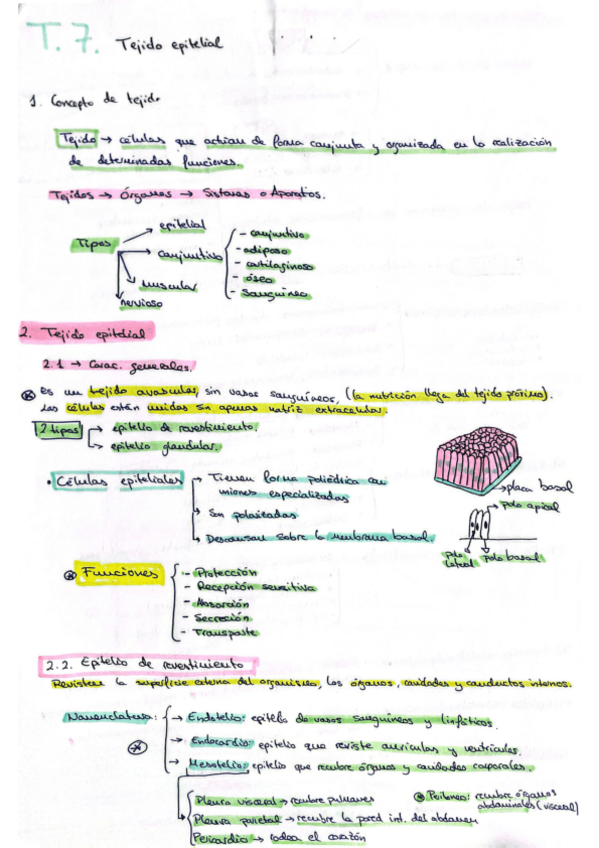 T. 7. Tejido epitelial
1. Concepto de tejido
Tejido → células que actúan de forma conjunta y organizada en la realización
de determinadas funciones.
Tejidos → Órganos → Sistemas o Aparatos.
Tipos
epitelial
conjuntivo
muscular
nervioso
- conjuntivo
- adiposo
- cartilaginoso
- óseo
- sanguíneo
2. Tejido epitelial
2.1 → Carac. generales.
Es un tejido avascular, sin vasos sanguíneos, (la nutrición llega del tejido próximo).
Las células están unidas sin apenas matriz extracelular.
2 tipos
→ epitelio de revestimiento.
→ epitelio glandular.
• Células epiteliales
→ Tienen forma poliédrica con
uniones especializadas
→ Son polarizadas
→ Descansan sobre la membrana basal.
→ placa basal
→ polo apical
polo lateral
polo basal
Funciones
- Protección
- Recepción sensitiva
- Absorción
- Secreción
- Transporte
2.2. Epitelio de revestimiento
Revisten la superficie externa del organismo, los órganos, cavidades y conductos internos.
Nomenclatura:
→ Endotelio: epitelio de vasos sanguíneos y linfáticos.
→ Endocardio: epitelio que reviste aurículas y ventrículos.
→ Mesotelio: epitelio que recubre órganos y cavidades corporales.
Pleura visceral → recubre pulmones
Pleura parietal → recubre la pared int. del abdomen
Pericardio → rodea el corazón
Peritoneo: recubre órganos
abdominales (visceral)